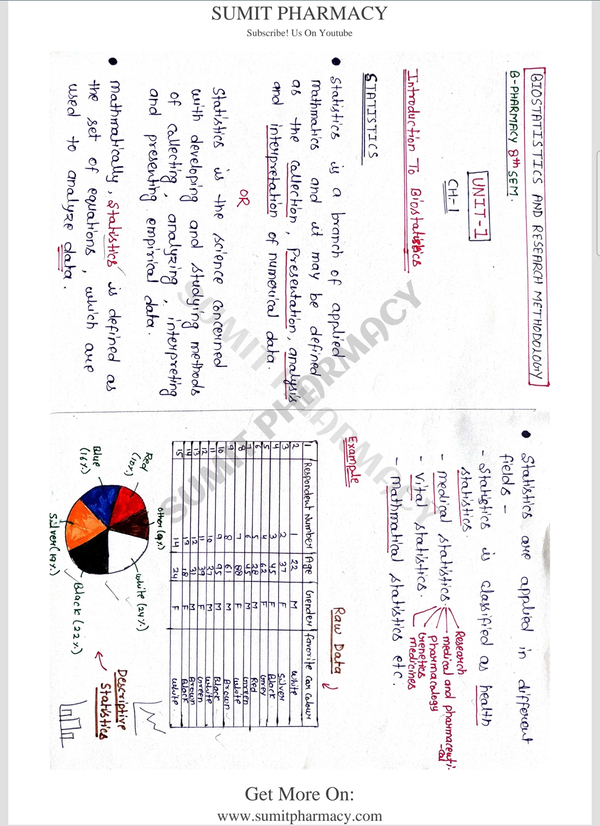 SUMIT PHARMACY
Subscribe! Us On Youtube
BIOSTATISTICS AND RESEARCH METHODOLOGY
B-PHARMACY 8th SEM.
UNIT-1
CH-1
Introduction To Biostatistics
STATISTICS
• Statistics is a branch of applied
mathmatics and it may be defined
as the collection, Presentation, analysis
and interpretation of numerical data.
OR
Statistics is the science concerned
with developing and studying methods
of collecting, analyzing, interpreting
and presenting empirical data.
• mathmatically, statistics is defined as
the set of equations, which are
used to analyze data.
SUMIT PHARMACY
• Statistics are applied in different
fields -
- Statistics is classified as health
statistics
- medical statistics.
- vital statistics.
- mathmatical statistics etc.
Research
medical and pharmaceuti-
cal
Pharmacology
Genetics
medicines
Example
Raw Data
1 Respondent Number Age Gender favorite Car Colour
2 1 22 M White
3 2 37 F Silver
4 3 45 F Black
5 4 62 F Grey
6 5 28 M Red
7 6 45 M Green
8 7 F White
9 8 61 M Brown
10 9 95 M Black
11 10 37 M White
12 11 39 F Green
13 12 31 M Brown
14 13 18 F Black
15 14 24 F White
other (9%)
White (24%)
Red (10%)
Blue (16%)
Silver (19%)
Black (22%)
Descriptive
Statistics
SUMIT PHARMACY
Get More On:
www.sumitpharmacy.com